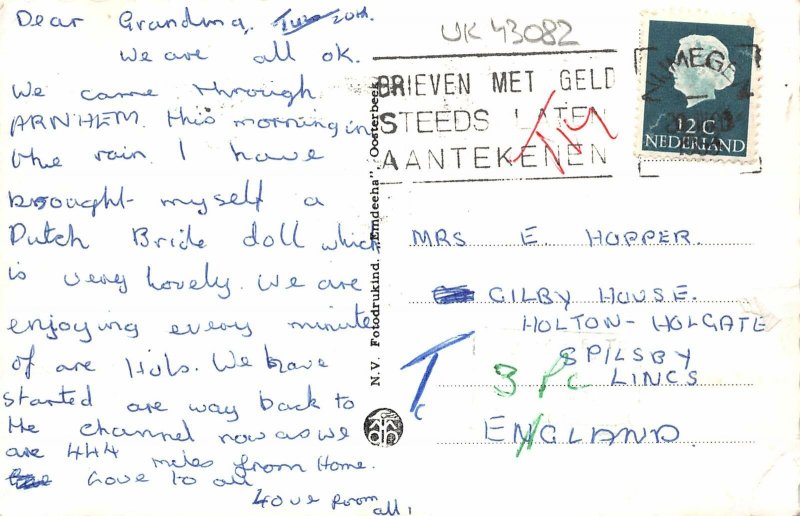 Dear Grandma, Tues 20th.
We are all ok.
We came through
ARNHEM. this morning in
the rain. I have
brought myself a
Dutch Bride doll which
is very lovely. We are
enjoying every minute
of are Hols. We have
started are way back to
the channel now as we
are 444 miles from Home.
Love to all
Love from all.
N.V. Fotodrukind. „Emdeena", Oosterbeek
UK 43082
BRIEVEN MET GELD
STEEDS LATEN
AANTEKENEN
NIJMEGEN
12 C
NEDERLAND
MRS E. HOPPER.
GILBY HOUSE.
HOLTON-HOLGATE
SPILSBY
LINCS
ENGLAND.
T
3 Pc